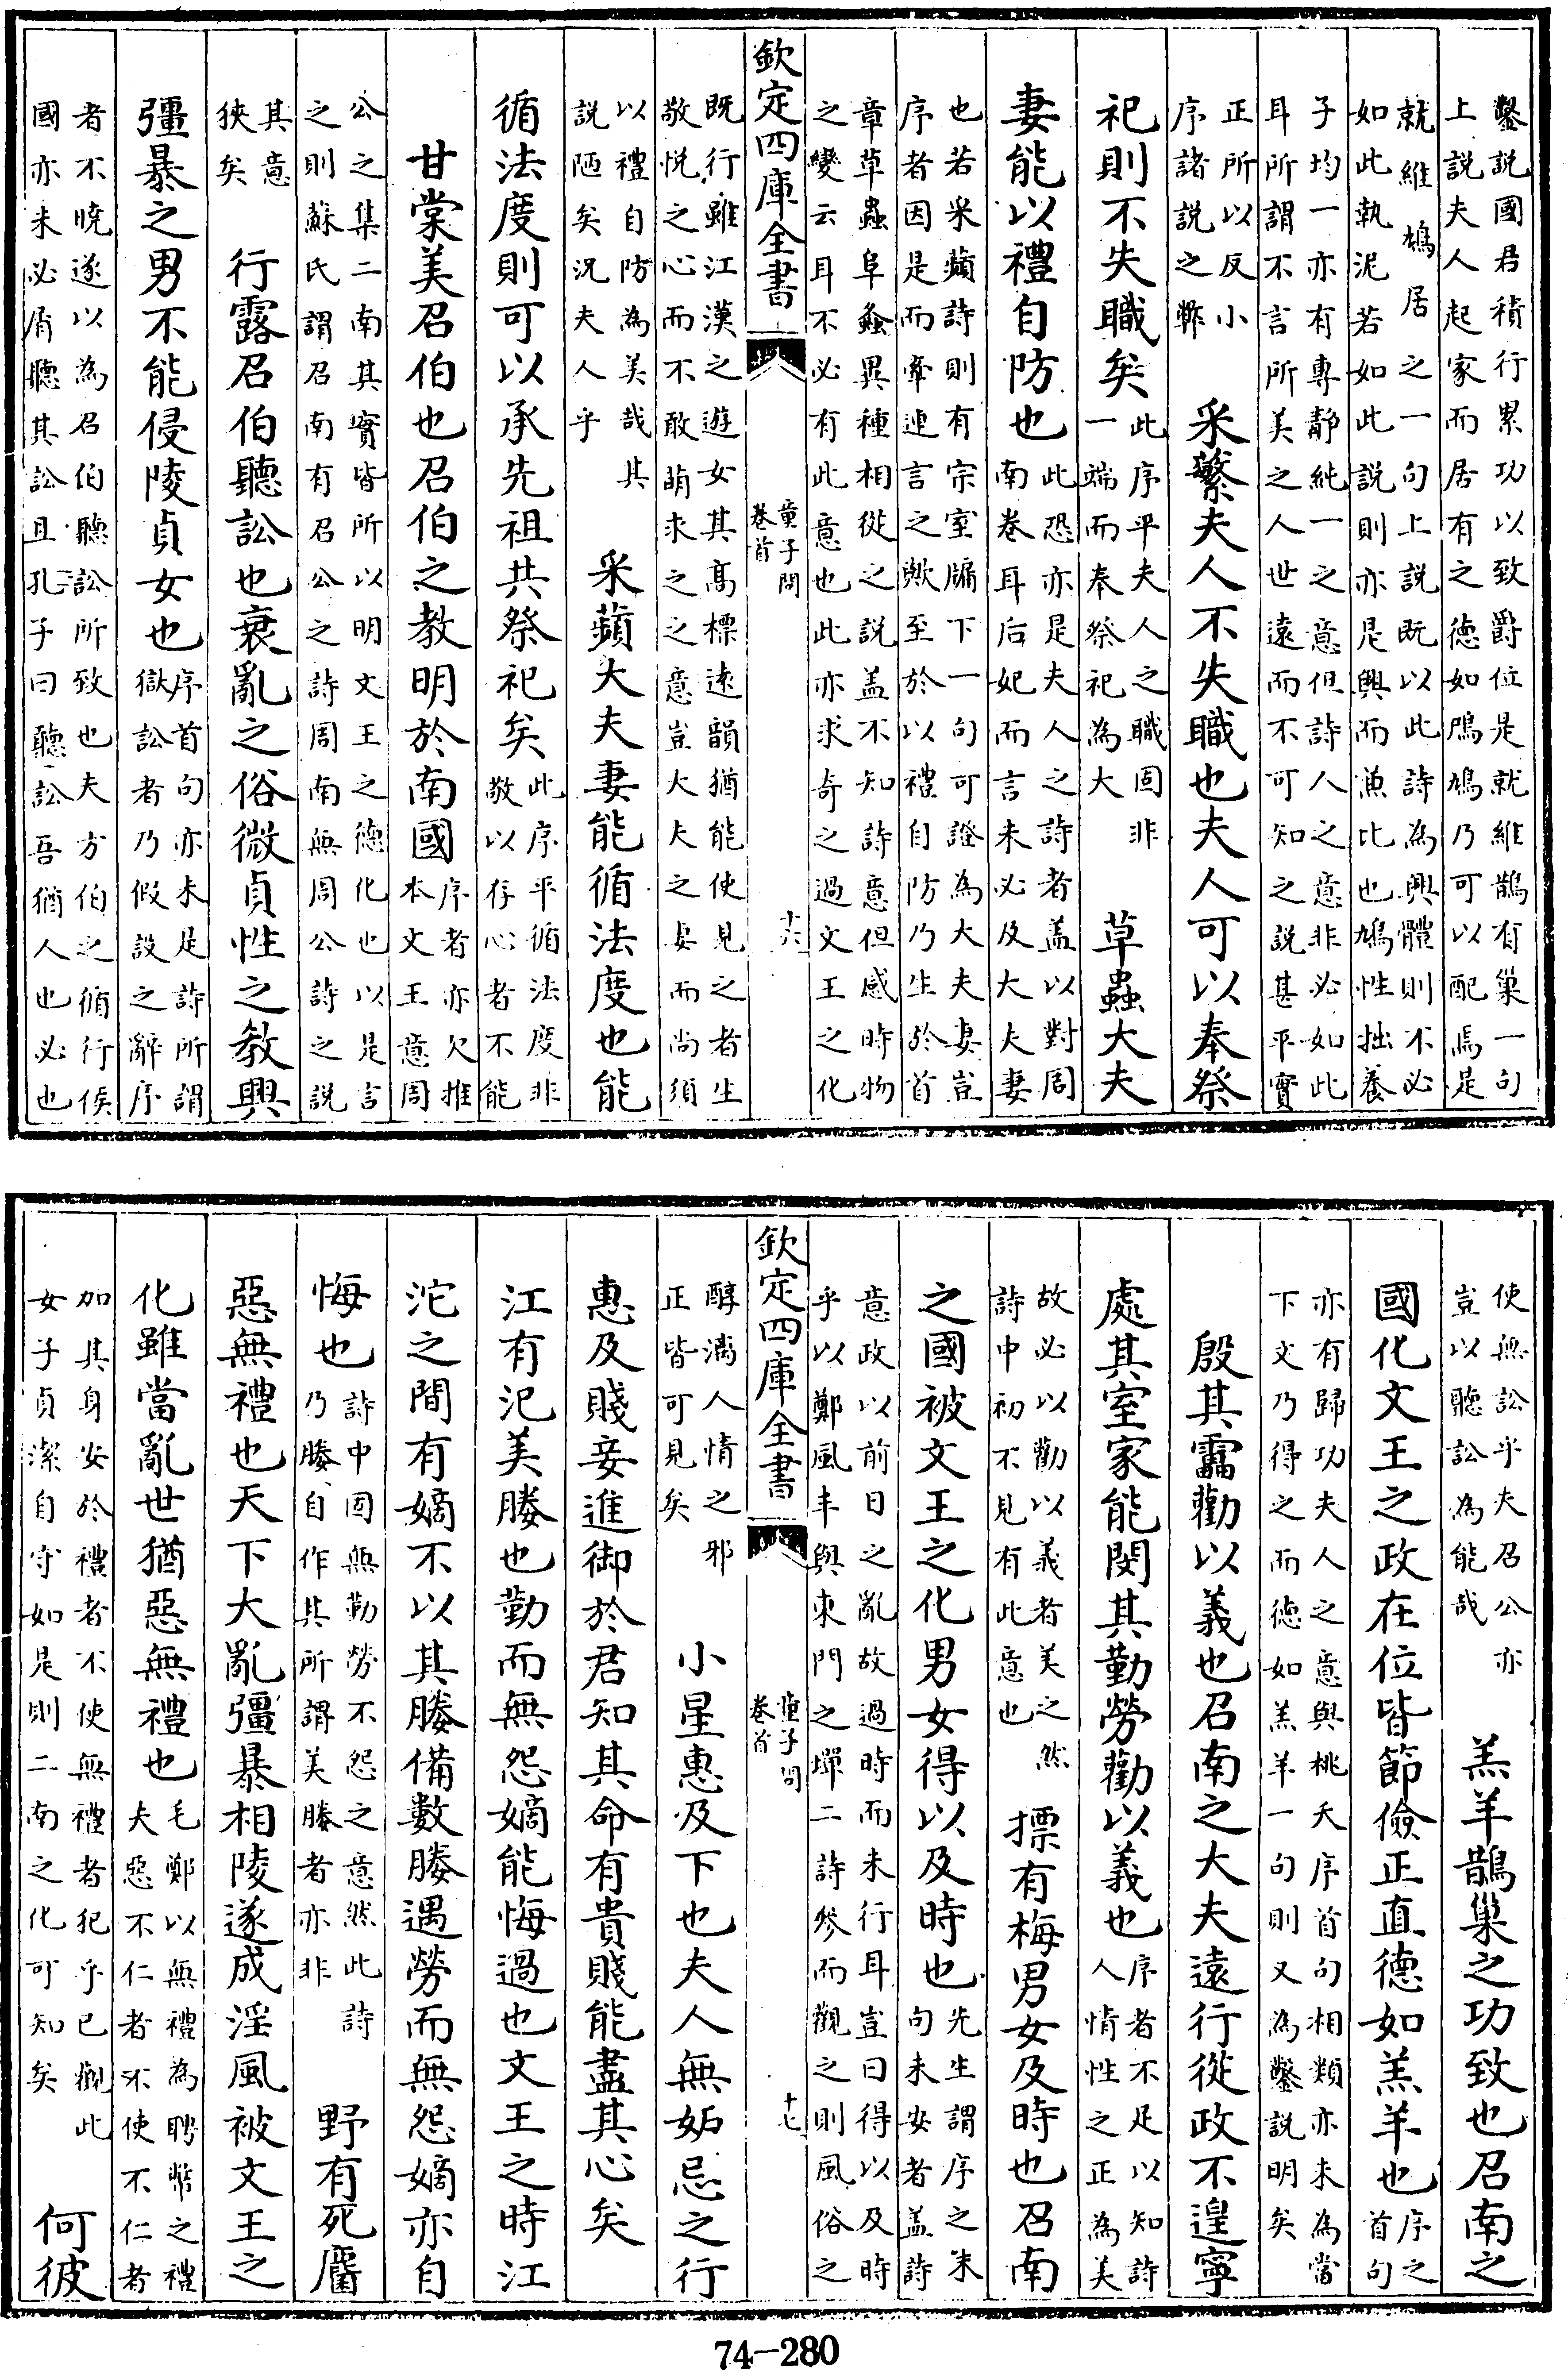 鑿說國君積行累功以致爵位是就維鵲有巢一句
上說夫人起家而居有之德如鳲鳩乃可以配焉是
就維鳩居之一句上說既以此詩為興體則不必
如此執泥若如此說則亦是興而兼比也鳩性拙養
子均一亦有專靜純一之意但詩人之意非必如此
耳所謂不言所美之人世遠而不可知之說甚平實
正所以反小
序諸說之弊
采蘩夫人不失職也夫人可以奉祭
祀則不失職矣
此序平夫人之職固非
一端而奉祭祀為大
草蟲大夫
妻能以禮自防也
此恐亦是夫人之詩者盖以對周
南卷耳后妃而言未必及大夫妻
也若采蘋詩則有宗室牖下一句可證為大夫妻豈
序者因是而牽連言之歟至於以禮自防乃生於首
章草蟲阜螽異種相從之說盖不知詩意但感時物
之變云耳不必有此意也此亦求奇之過文王之化
欽定四庫全書
童子問
卷首
十六
既行雖江漢之遊女其高標遠韻猶能使見之者生
敬悅之心而不敢萌求之之意豈大夫之妻而尚須
以禮自防為美哉其
說陋矣況夫人乎
采蘋大夫妻能循法度也能
循法度則可以承先祖共祭祀矣
此序平循法度非
敬以存心者不能
甘棠美召伯也召伯之教明於南國
序者亦欠推
本文王意周
公之集二南其實皆所以明文王之德化也以是言
之則蘇氏謂召南有召公之詩周南無周公詩之說
其意
狹矣
行露召伯聽訟也衰亂之俗微貞性之教興
彊暴之男不能侵陵貞女也
序首句亦未是詩所謂
獄訟者乃假設之辭序
者不曉遂以為召伯聽訟所致也夫方伯之循行侯
國亦未必屑聽其訟且孔子曰聽訟吾猶人也必也
使無訟乎夫召公亦
豈以聽訟為能哉
羔羊鵲巢之功致也召南之
國化文王之政在位皆節儉正直德如羔羊也
序之
首句
亦有歸功夫人之意與桃夭序首句相類亦未為當
下文乃得之而德如羔羊一句則又為鑿說明矣
殷其靁勸以義也召南之大夫遠行從政不遑寧
處其室家能閔其勤勞勸以義也
序者不足以知詩
人情性之正為美
故必以勸以義者美之然
詩中初不見有此意也
摽有梅男女及時也召南
之國被文王之化男女得以及時也
先生謂序之末
句未安者盖詩
意政以前日之亂故過時而未行耳豈曰得以及時
乎以鄭風丰與東門之墠二詩參而觀之則風俗之
欽定四庫全書
童子問
卷首
十七
醇漓人情之邪
正皆可見矣
小星惠及下也夫人無妬忌之行
惠及賤妾進御於君知其命有貴賤能盡其心矣
江有汜美媵也勤而無怨嫡能悔過也文王之時江
沱之間有嫡不以其媵備數媵遇勞而無怨嫡亦自
悔也
詩中固無勤勞不怨之意然此詩
乃媵自作其所謂美媵者亦非
野有死麕
惡無禮也天下大亂彊暴相陵遂成淫風被文王之
化雖當亂世猶惡無禮也
毛鄭以無禮為聘幣之禮
夫惡不仁者不使不仁者
加其身安於禮者不使無禮者犯乎已觀此
女子貞潔自守如是則二南之化可知矣
何彼
74-280